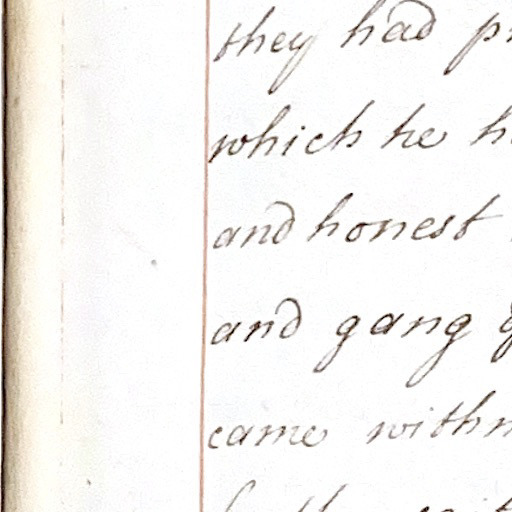 they had
which he
and honest
and gang
came with